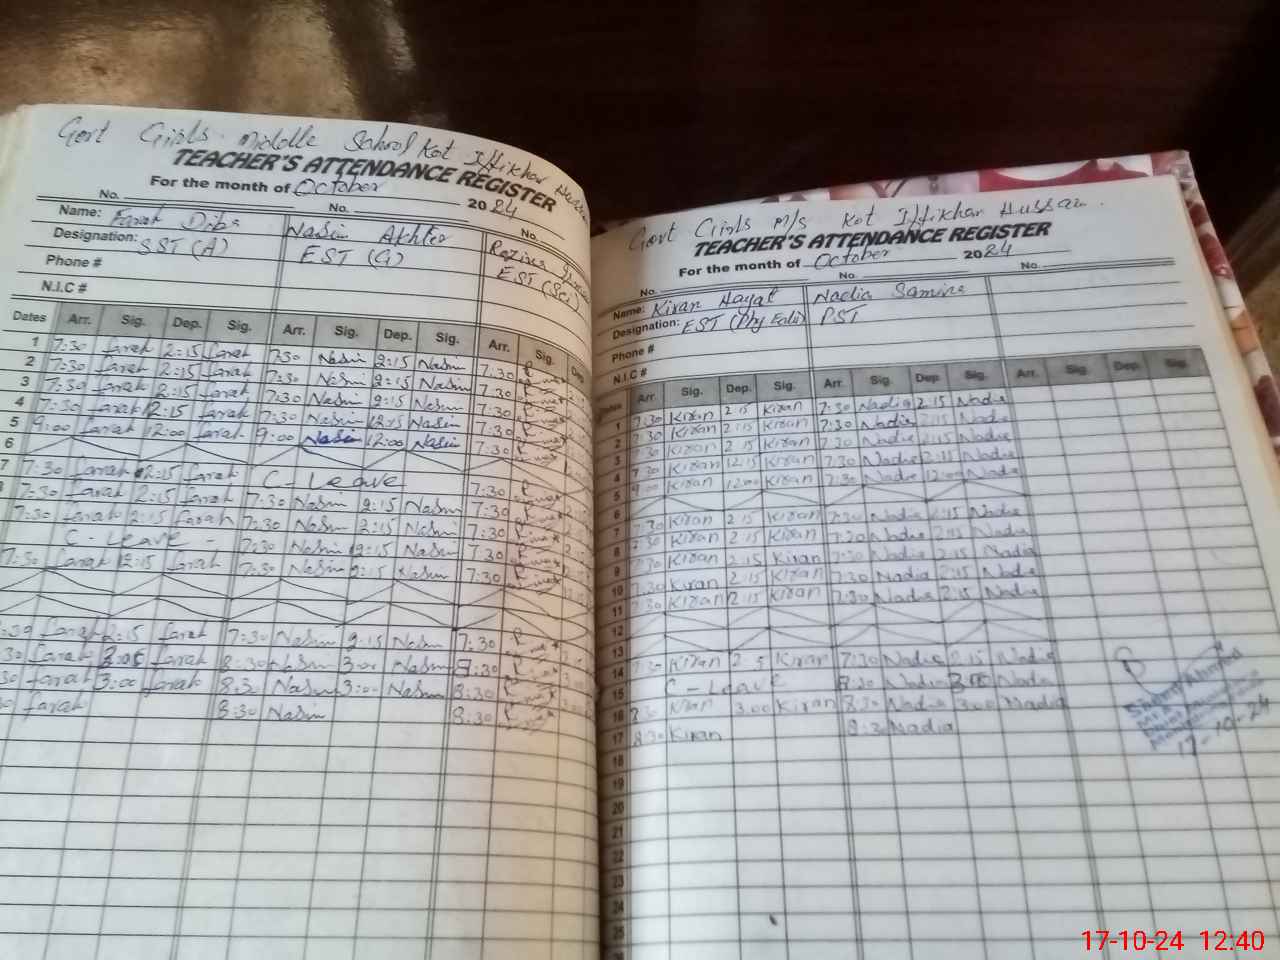 Govt Girls Middle School Kot Iftikhar
TEACHER'S ATTENDANCE REGISTER
For the month of October 2024
No. No. No.
Name: Farah Diba Nasim Akhter
Designation: SST (A) EST (G) EST (Sci)
Phone #
N.I.C #
Dates Arr. Sig. Dep. Sig. Arr. Sig. Dep. Sig. Arr. Sig. Dep
1 7:30 farah 2:15 farah 7:30 Nasim 2:15 Nasim 7:30
2 7:30 farah 2:15 farah 7:30 Nasim 2:15 Nasim 7:30
3 7:30 farah 2:15 farah 7:30 Nasim 2:15 Nasim 7:30
4 7:30 farah 12:15 farah 7:30 Nasim 12:15 Nasim 7:30
5 9:00 farah 12:00 farah 9:00 Nasim 12:00 Nasim 7:30
6
7 7:30 farah 2:15 farah C-Leave 7:30
7:30 farah 2:15 farah 7:30 Nasim 2:15 Nasim 7:30
7:30 farah 2:15 farah 7:30 Nasim 2:15 Nasim 7:30
C-Leave- 7:30 Nasim 2:15 Nasim 7:30
7:30 farah 2:15 farah 7:30 Nasim 2:15 Nasim 7:30
:30 farah 2:15 farah 7:30 Nasim 2:15 Nasim 7:30
30 farah farah 8:30 Nasim 3:00 Nasim 8:30
30 farah 3:00 farah 8:30 Nasim 3:00 Nasim 8:30
farah 8:30 Nasim 8:30
Govt Girls M/S Kot Iftikhar Hussain.
TEACHER'S ATTENDANCE REGISTER
For the month of October 2024
No. No. No.
Name: Kiran Hayat Nadia Samina
Designation: EST (Phy Edu) PST
Phone #
N.I.C #
Dates Arr. Sig. Dep. Sig. Arr. Sig. Dep. Sig. Arr. Sig. Dep. Sig.
1 7:30 Kiran 2:15 Kiran 7:30 Nadia 2:15 Nadia
2 7:30 Kiran 2:15 Kiran 7:30 Nadia 2:15 Nadia
3 7:30 Kiran 2:15 Kiran 7:30 Nadia 2:15 Nadia
4 7:30 Kiran 12:15 Kiran 7:30 Nadia Nadia
5 9:00 Kiran 12:00 Kiran 7:30 Nadia 12:00 Nadia
6
7 7:30 Kiran 2:15 Kiran 7:30 Nadia 2:15 Nadia
8 7:30 Kiran 2:15 Kiran 7:30 Nadia 2:15 Nadia
9 7:30 Kiran 2:15 Kiran 7:30 Nadia 2:15 Nadia
10 7:30 Kiran 2:15 Kiran 7:30 Nadia 2:15 Nadia
11 7:30 Kiran 2:15 Kiran 7:30 Nadia 2:15 Nadia
12
13
14 7:30 Kiran Kiran 7:30 Nadia 2:15 Nadia
15 C-Leave Nadia 3:00 Nadia
16 Kiran 3:00 Kiran 8:30 Nadia 3:00 Nadia
17 8:30 Kiran 8:30 Nadia
18
19
20
21
22
23
24
25
17-10-24
17-10-24 12:40